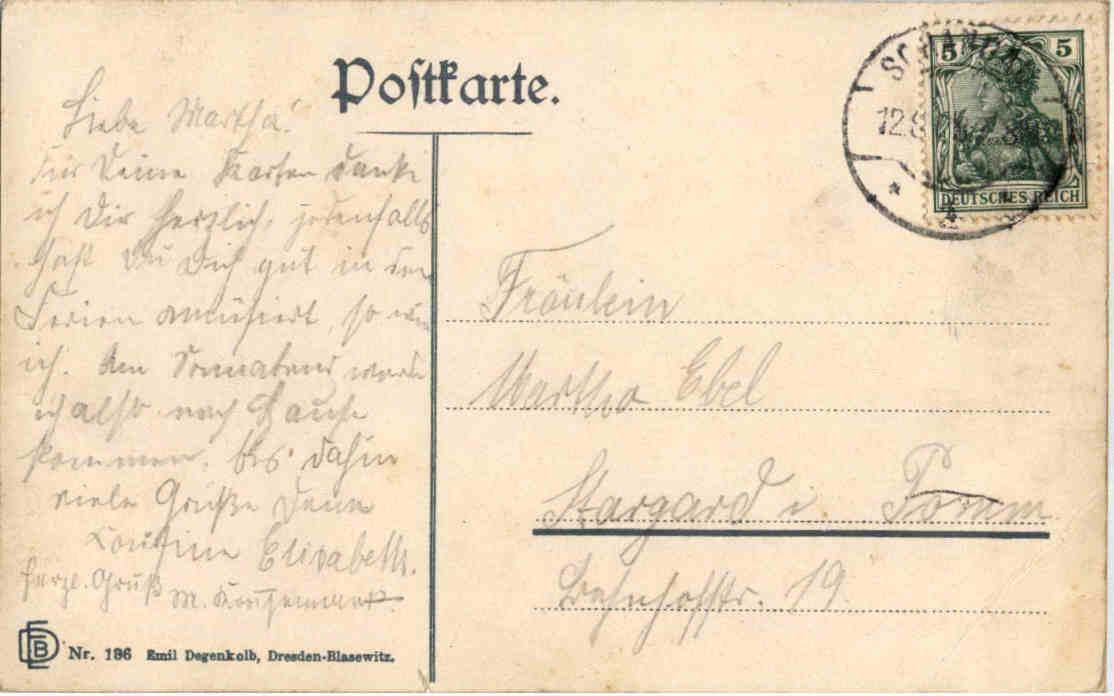 Postkarte.
SCHANDAU
12.8.
5 5
DEUTSCHES REICH
Liebe Martha!
Für Deine Karten danke
ich Dir herzlich, jedenfalls
hast Du Dich gut in den
Ferien amüsiert, so wie
ich. Am Sonnabend werde
ich also nach Hause
kommen. bis dahin
viele Grüße Deine
Cousine Elisabeth.
herzl. Gruß M.
Fräulein
Martha Ebel
Stargard i. Pomm
Bahnhofstr. 19.
Nr. 196 Emil Degenkolb, Dresden-Blasewitz.